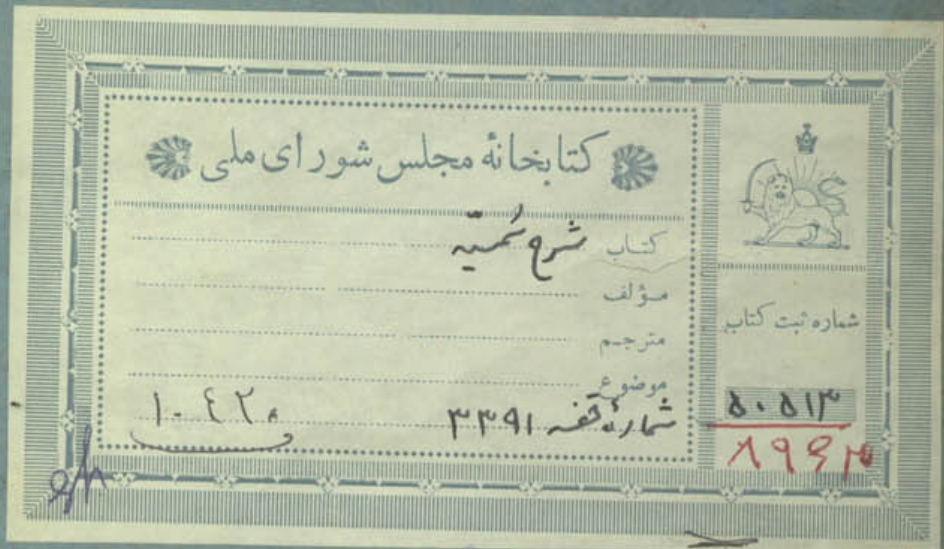 کتابخانهٔ مجلس شورای ملی
کتاب شرح شمسیه
مؤلف
مترجم
موضوع
شمارهٔ قفسه ۳۳۹۱
۱۰۴۲۰
شماره ثبت کتاب
۵۰۵۱۳